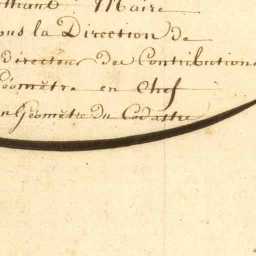 Maire
sous la Direction de
directeur des Contributions
Géomètre en Chef
Géomètre du Cadastre